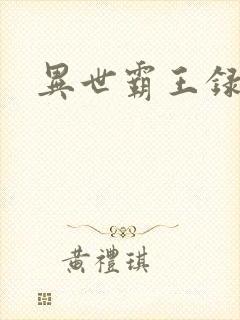 異世霸王録
黃禮琪